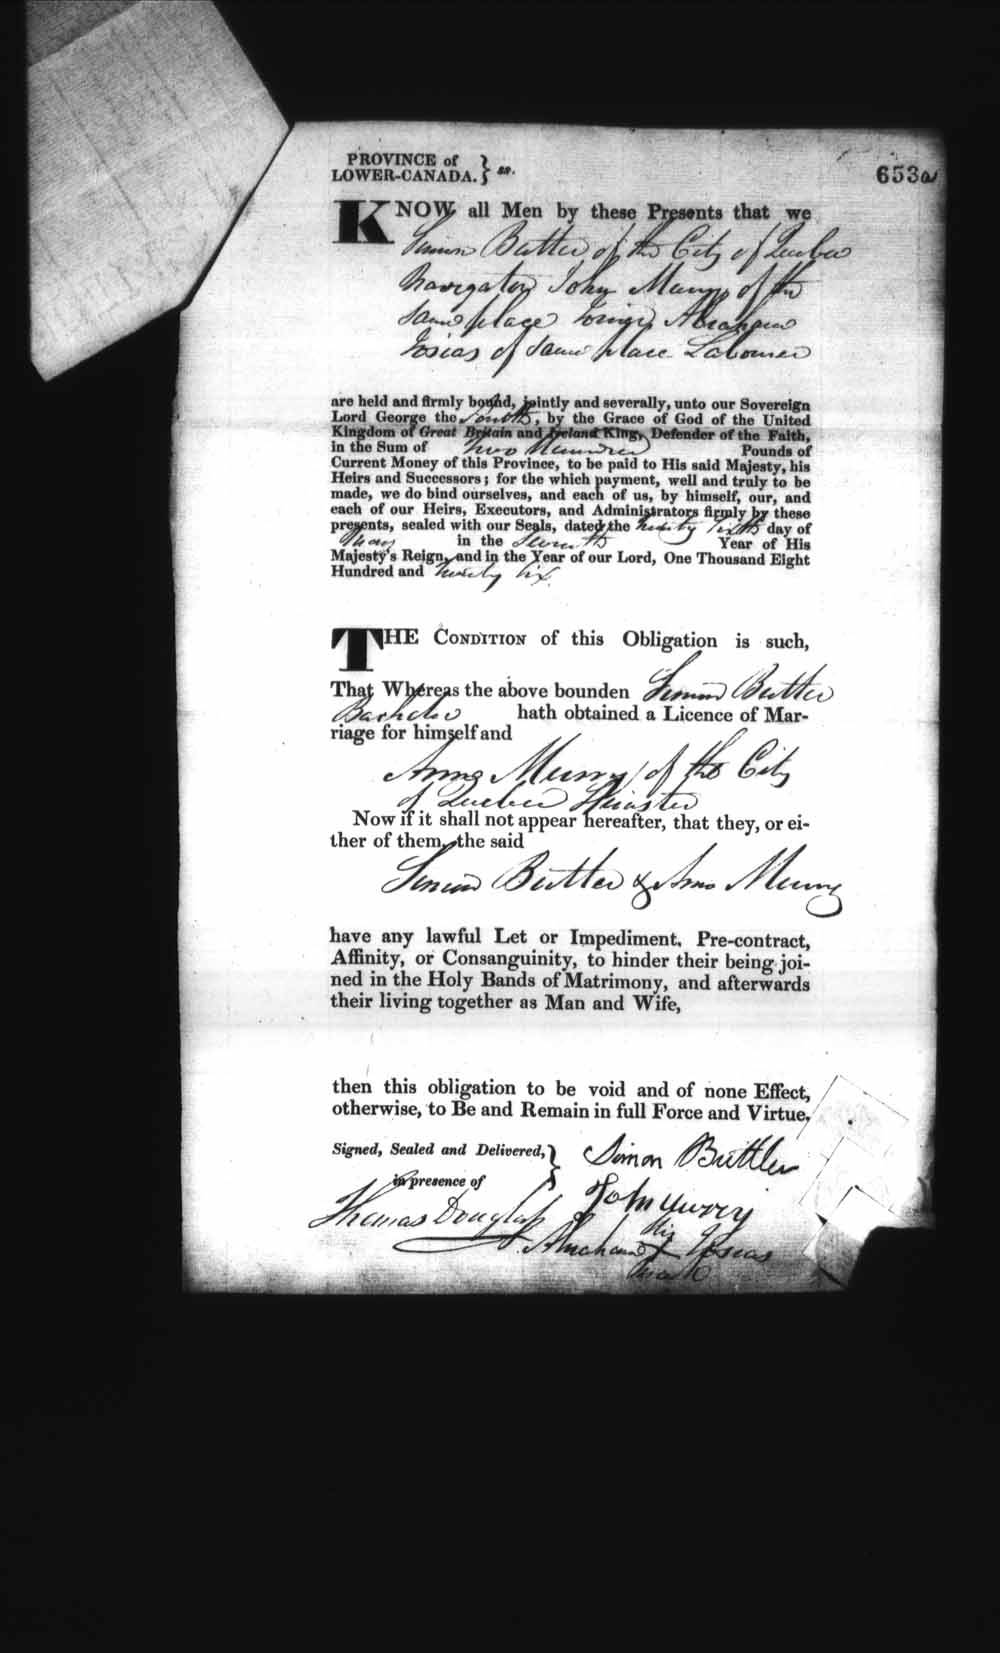 PROVINCE of
LOWER-CANADA. } ss.
653a
KNOW all Men by these Presents that we
Simon Buttler of the City of Quebec
Navigator John Murry of the
same place Abraham
Josias of same place Labourer
are held and firmly bound, jointly and severally, unto our Sovereign
Lord George the fourth, by the Grace of God of the United
Kingdom of Great Britain and Ireland King, Defender of the Faith,
in the Sum of Two Hundred Pounds of
Current Money of this Province, to be paid to His said Majesty, his
Heirs and Successors; for the which payment, well and truly to be
made, we do bind ourselves, and each of us, by himself, our, and
each of our Heirs, Executors, and Administrators firmly by these
presents, sealed with our Seals, dated the twenty sixth day of
May in the Seventh Year of His
Majesty's Reign, and in the Year of our Lord, One Thousand Eight
Hundred and twenty six.
THE CONDITION of this Obligation is such,
That Whereas the above bounden Simon Buttler
Bachelor hath obtained a Licence of Mar-
riage for himself and
Anne Murry of the City
of Quebec Spinster
Now if it shall not appear hereafter, that they, or ei-
ther of them, the said
Simon Buttler & Ann Murry
have any lawful Let or Impediment, Pre-contract,
Affinity, or Consanguinity, to hinder their being joi-
ned in the Holy Bands of Matrimony, and afterwards
their living together as Man and Wife,
then this obligation to be void and of none Effect,
otherwise, to Be and Remain in full Force and Virtue.
Signed, Sealed and Delivered, } Simon Buttler
in presence of John Murry
Thomas Douglass his
Abraham X Josias
mark